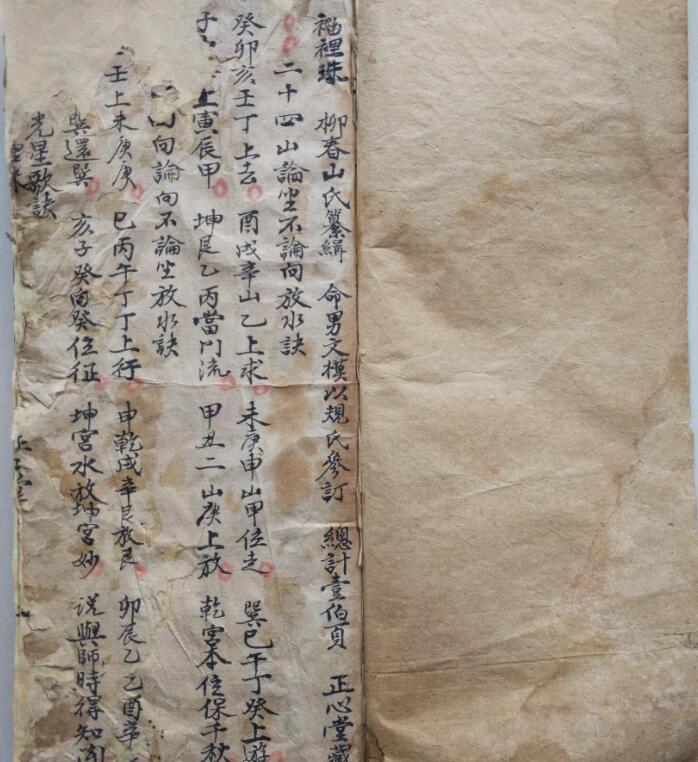 福裡珠 柳春山氏纂緝 命男文模以規氏參訂 總計壹伯頁 正心堂藏
二十四山論坐不論向放水訣
癸卯亥壬丁上去 酉戌辛山乙上求 未庚申山甲位走 巽巳午丁癸上遊
子 上寅辰甲 坤艮乙丙當門流 甲丑二山庚上放 乾宮本位保千秋
山向論向不論坐放水訣
壬上未庚庚 巳丙午丁丁上行 申乾戌辛艮放艮 卯辰乙乙酉辛
巽還巽 亥子癸向癸位征 坤宮水放坤宮妙 説與師時得知
光星歌訣